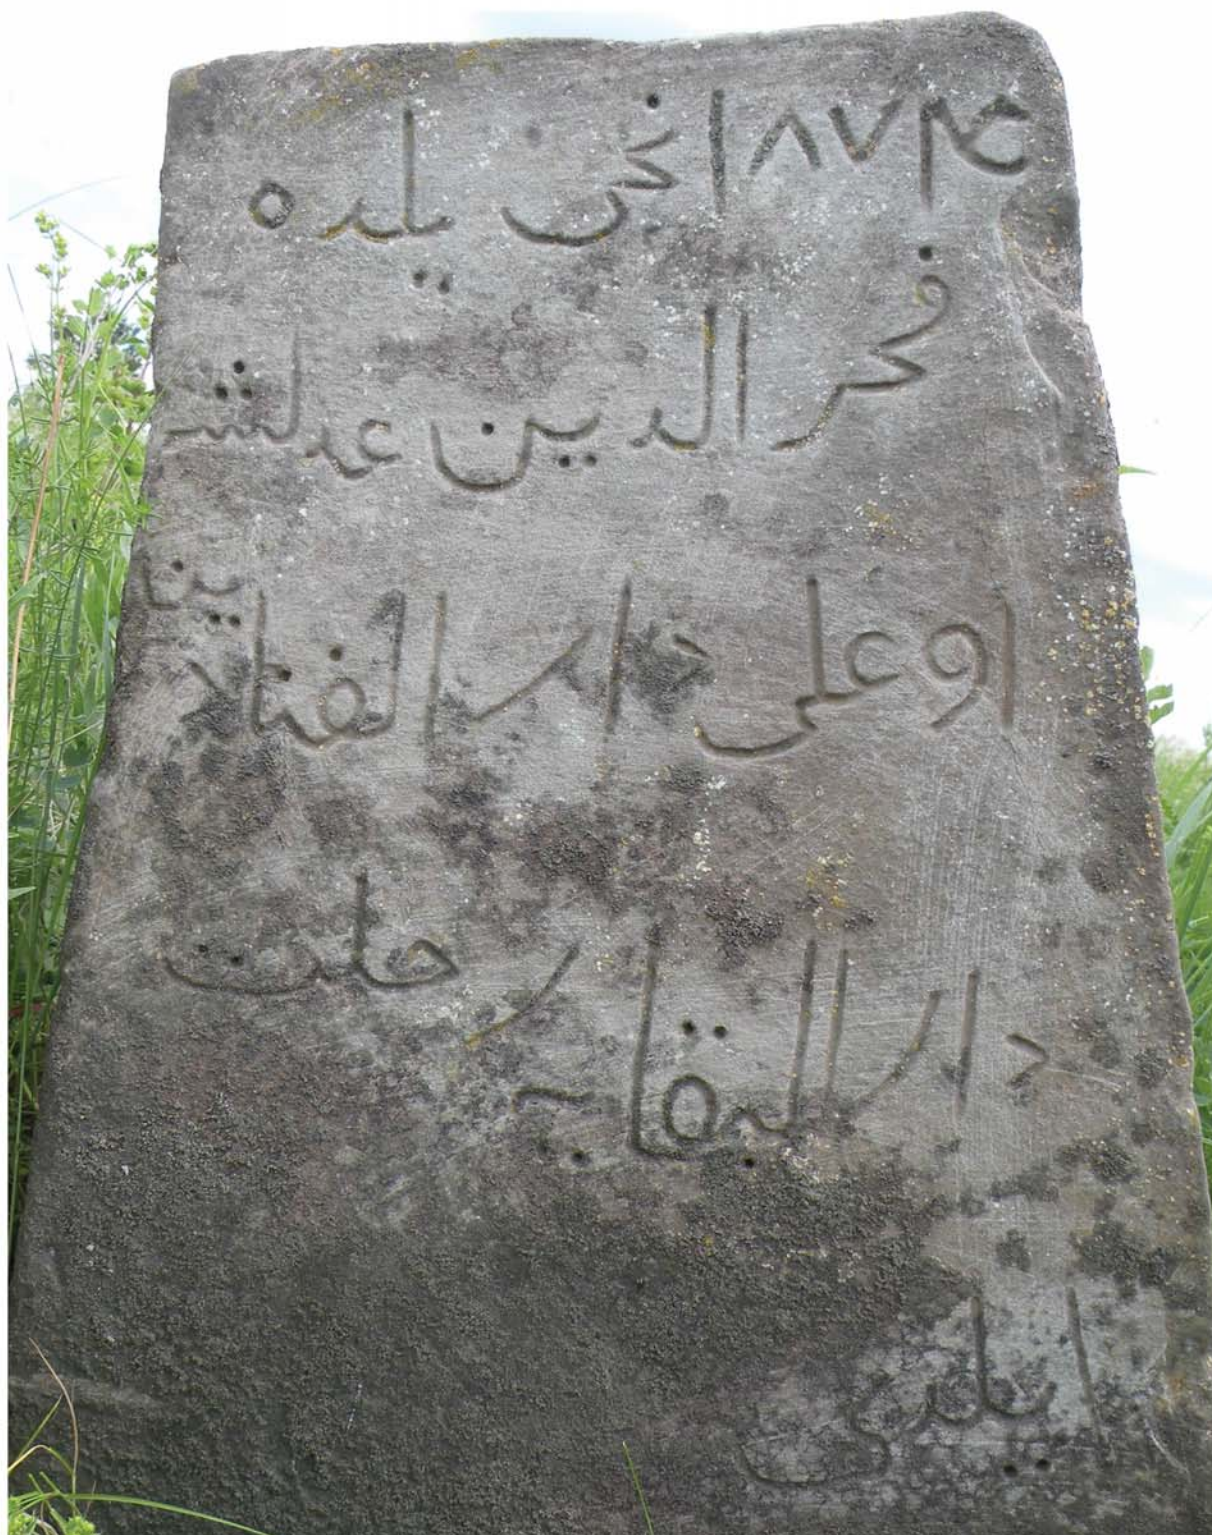 ١٨٧۴ نجی یلده
فخر الدین عدلشـ
اوغلی دار الفنادین
دار البقایه رحلت
ایلدی